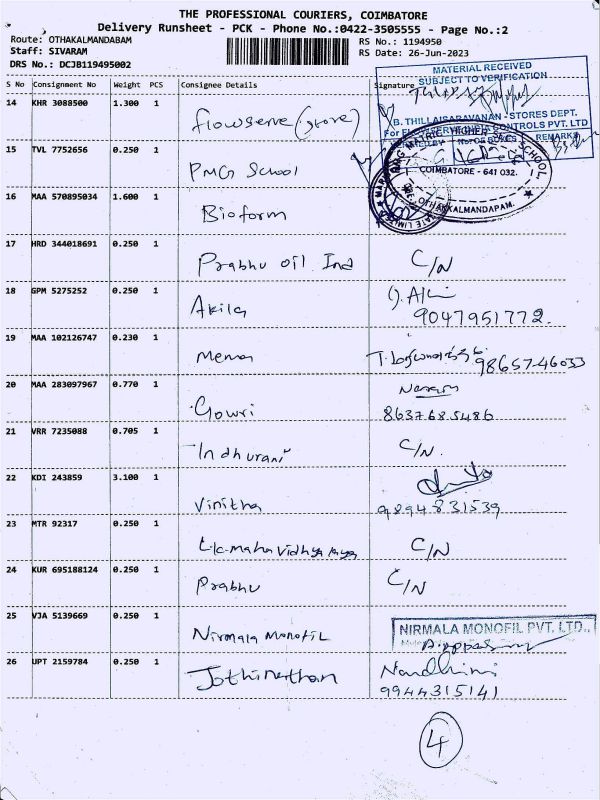 THE PROFESSIONAL COURIERS, COIMBATORE
Delivery Runsheet - PCK - Phone No.:0422-3505555 - Page No.:2
Route: OTHAKALMANDABAM
Staff: SIVARAM
DRS No.: DCJB119495002
RS No.: 1194950
RS Date: 26-Jun-2023
S No Consignment No Weight PCS Consignee Details Signature
MATERIAL RECEIVED
SUBJECT TO VERIFICATION
B. THILLAISARAVANAN - STORES DEPT.
CONTROLS PVT. LTD
REMARKS
14 KHR 3088500 1.300 1 flowserve (store)
15 TVL 7752656 0.250 1 PMG School
MATRIC HIGHER SEC SCHOOL
COIMBATORE - 641 032.
OTHAKKALMANDAPAM.
16 MAA 570895034 1.600 1 Bioform
17 HRD 344018691 0.250 1 Prabhu oil Ind C/N
18 GPM 5275252 0.250 1 Akila
9047951772.
19 MAA 102126747 0.230 1 Menon 98657-46033
20 MAA 283097967 0.770 1 Gowri
8637685486
21 VRR 7235088 0.705 1 Indhurani C/N.
22 KDI 243859 3.100 1 Vinitha
9894831539
23 MTR 92317 0.250 1 C/N
24 KUR 695188124 0.250 1 Prabhu C/N
25 VJA 5139669 0.250 1 Nirmala Monofil
NIRMALA MONOFIL PVT. LTD.,
26 UPT 2159784 0.250 1 Jothinathan Nandhini
9944315141
4